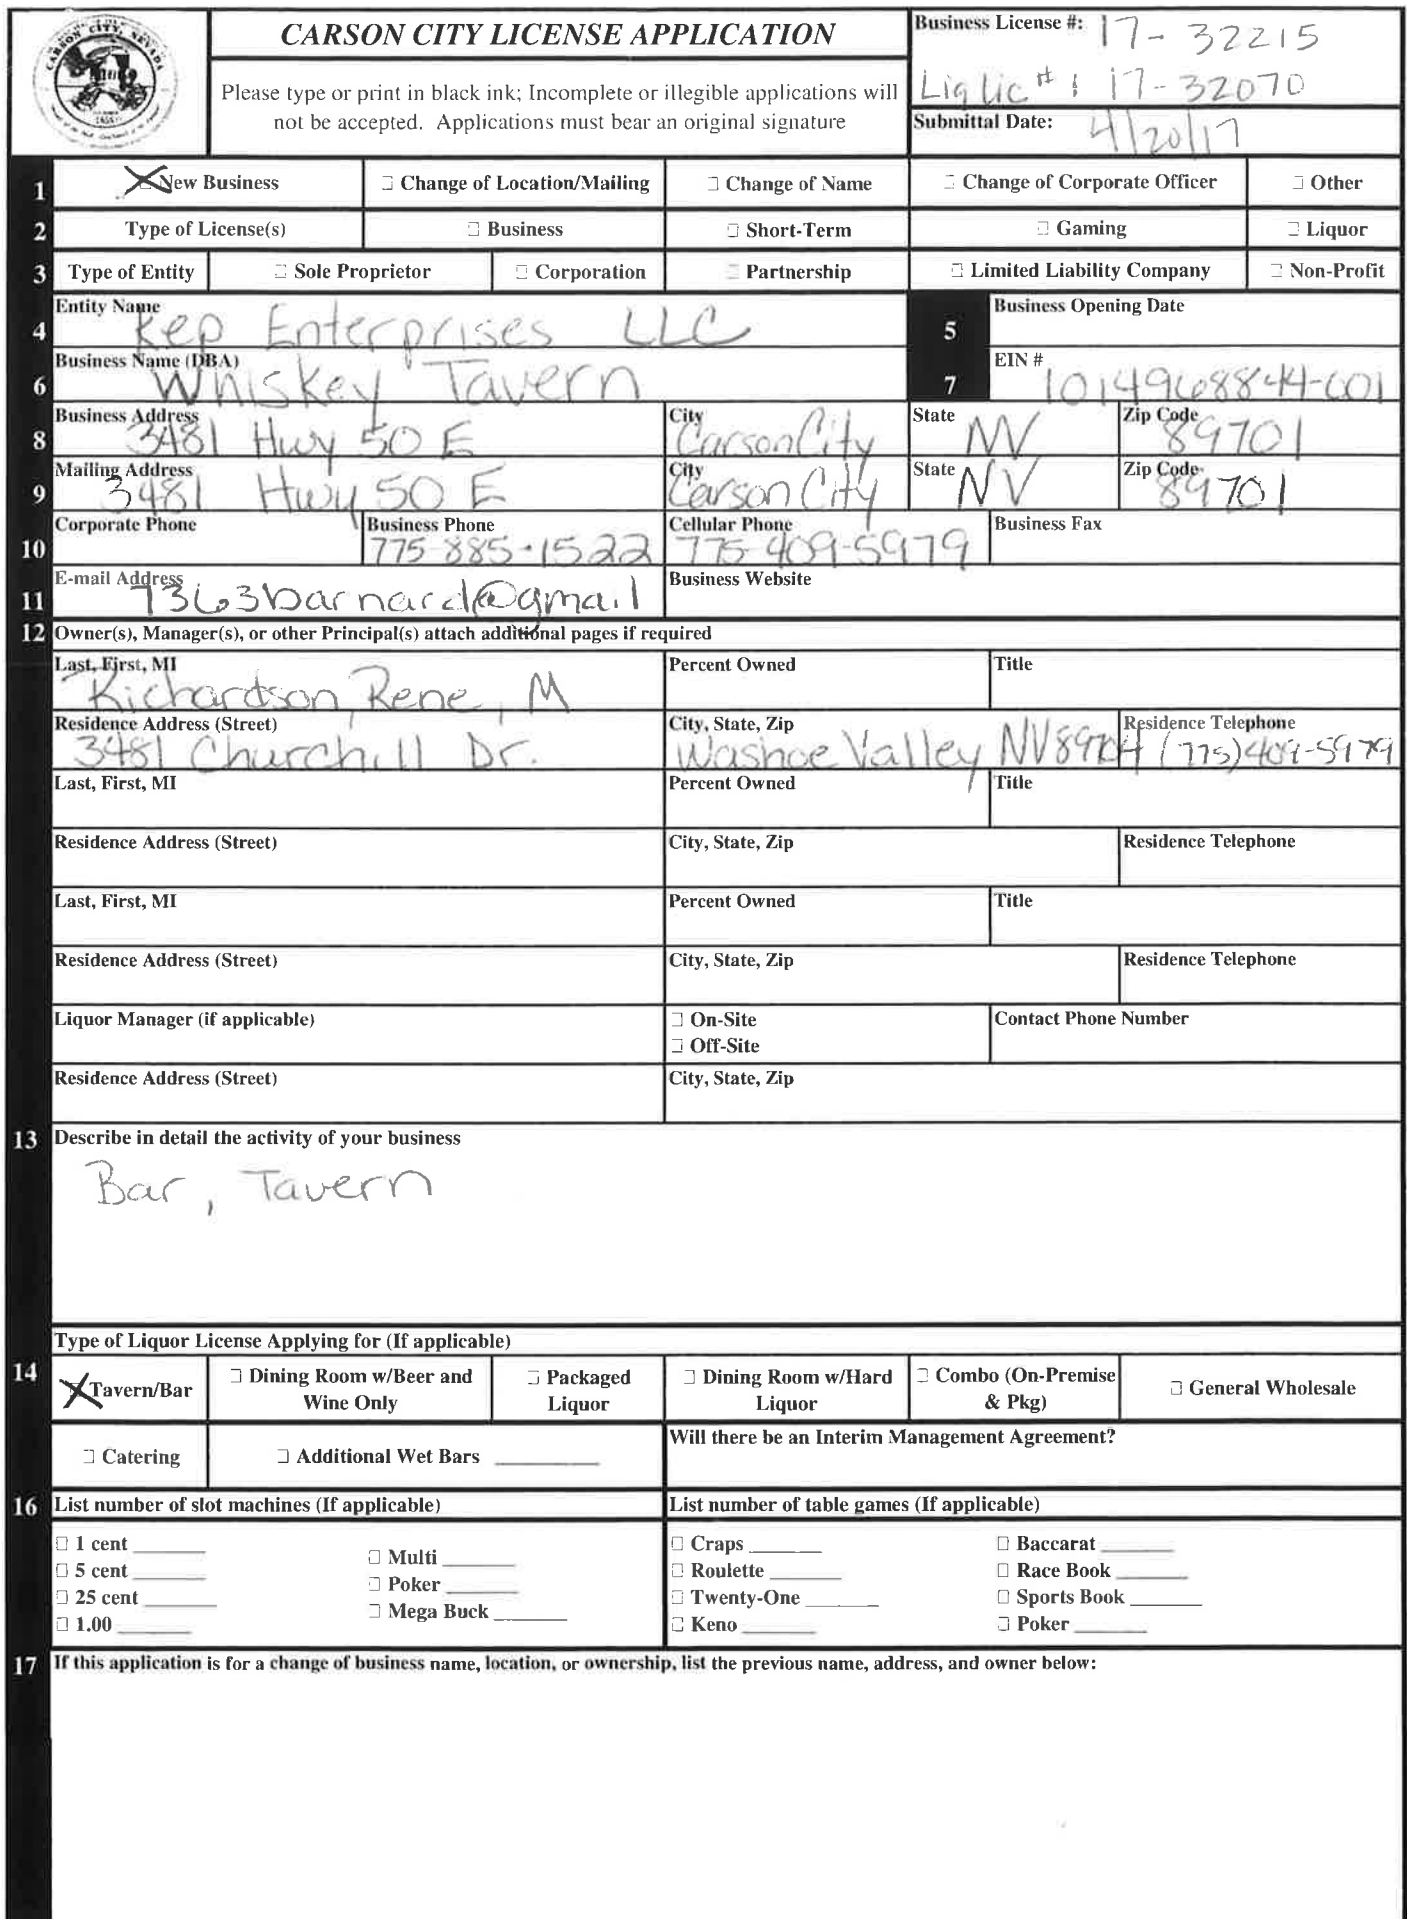 CARSON CITY, NEVADA
CARSON CITY LICENSE APPLICATION
Business License #: 17-32215
Liq Lic # : 17-32070
Please type or print in black ink; Incomplete or illegible applications will
not be accepted. Applications must bear an original signature
Submittal Date: 4/20/17
1 New Business Change of Location/Mailing Change of Name Change of Corporate Officer Other
2 Type of License(s) Business Short-Term Gaming Liquor
3 Type of Entity Sole Proprietor Corporation Partnership Limited Liability Company Non-Profit
4 Entity Name Kep Enterprises LLC 5 Business Opening Date
6 Business Name (DBA) Whiskey Tavern 7 EIN # 1014968844-001
8 Business Address 3481 Hwy 50 E City Carson City State NV Zip Code 89701
9 Mailing Address 3481 Hwy 50 E City Carson City State NV Zip Code 89701
10 Corporate Phone Business Phone 775-885-1522 Cellular Phone 775-409-5979 Business Fax
11 E-mail Address 7363barnard@gmail Business Website
12 Owner(s), Manager(s), or other Principal(s) attach additional pages if required
Last, First, MI Richardson, Rene, M Percent Owned Title
Residence Address (Street) 3481 Churchill Dr. City, State, Zip Washoe Valley NV 89704 Residence Telephone (775)409-5979
Last, First, MI Percent Owned Title
Residence Address (Street) City, State, Zip Residence Telephone
Last, First, MI Percent Owned Title
Residence Address (Street) City, State, Zip Residence Telephone
Liquor Manager (if applicable) On-Site Contact Phone Number
Off-Site
Residence Address (Street) City, State, Zip
13 Describe in detail the activity of your business
Bar, Tavern
Type of Liquor License Applying for (If applicable)
14 Tavern/Bar Dining Room w/Beer and Wine Only Packaged Liquor Dining Room w/Hard Liquor Combo (On-Premise & Pkg) General Wholesale
Catering Additional Wet Bars ______ Will there be an Interim Management Agreement?
16 List number of slot machines (If applicable) List number of table games (If applicable)
1 cent ______ Multi ______ Craps ______ Baccarat ______
5 cent ______ Poker ______ Roulette ______ Race Book ______
25 cent ______ Mega Buck ______ Twenty-One ______ Sports Book ______
1.00 ______ Keno ______ Poker ______
17 If this application is for a change of business name, location, or ownership, list the previous name, address, and owner below: